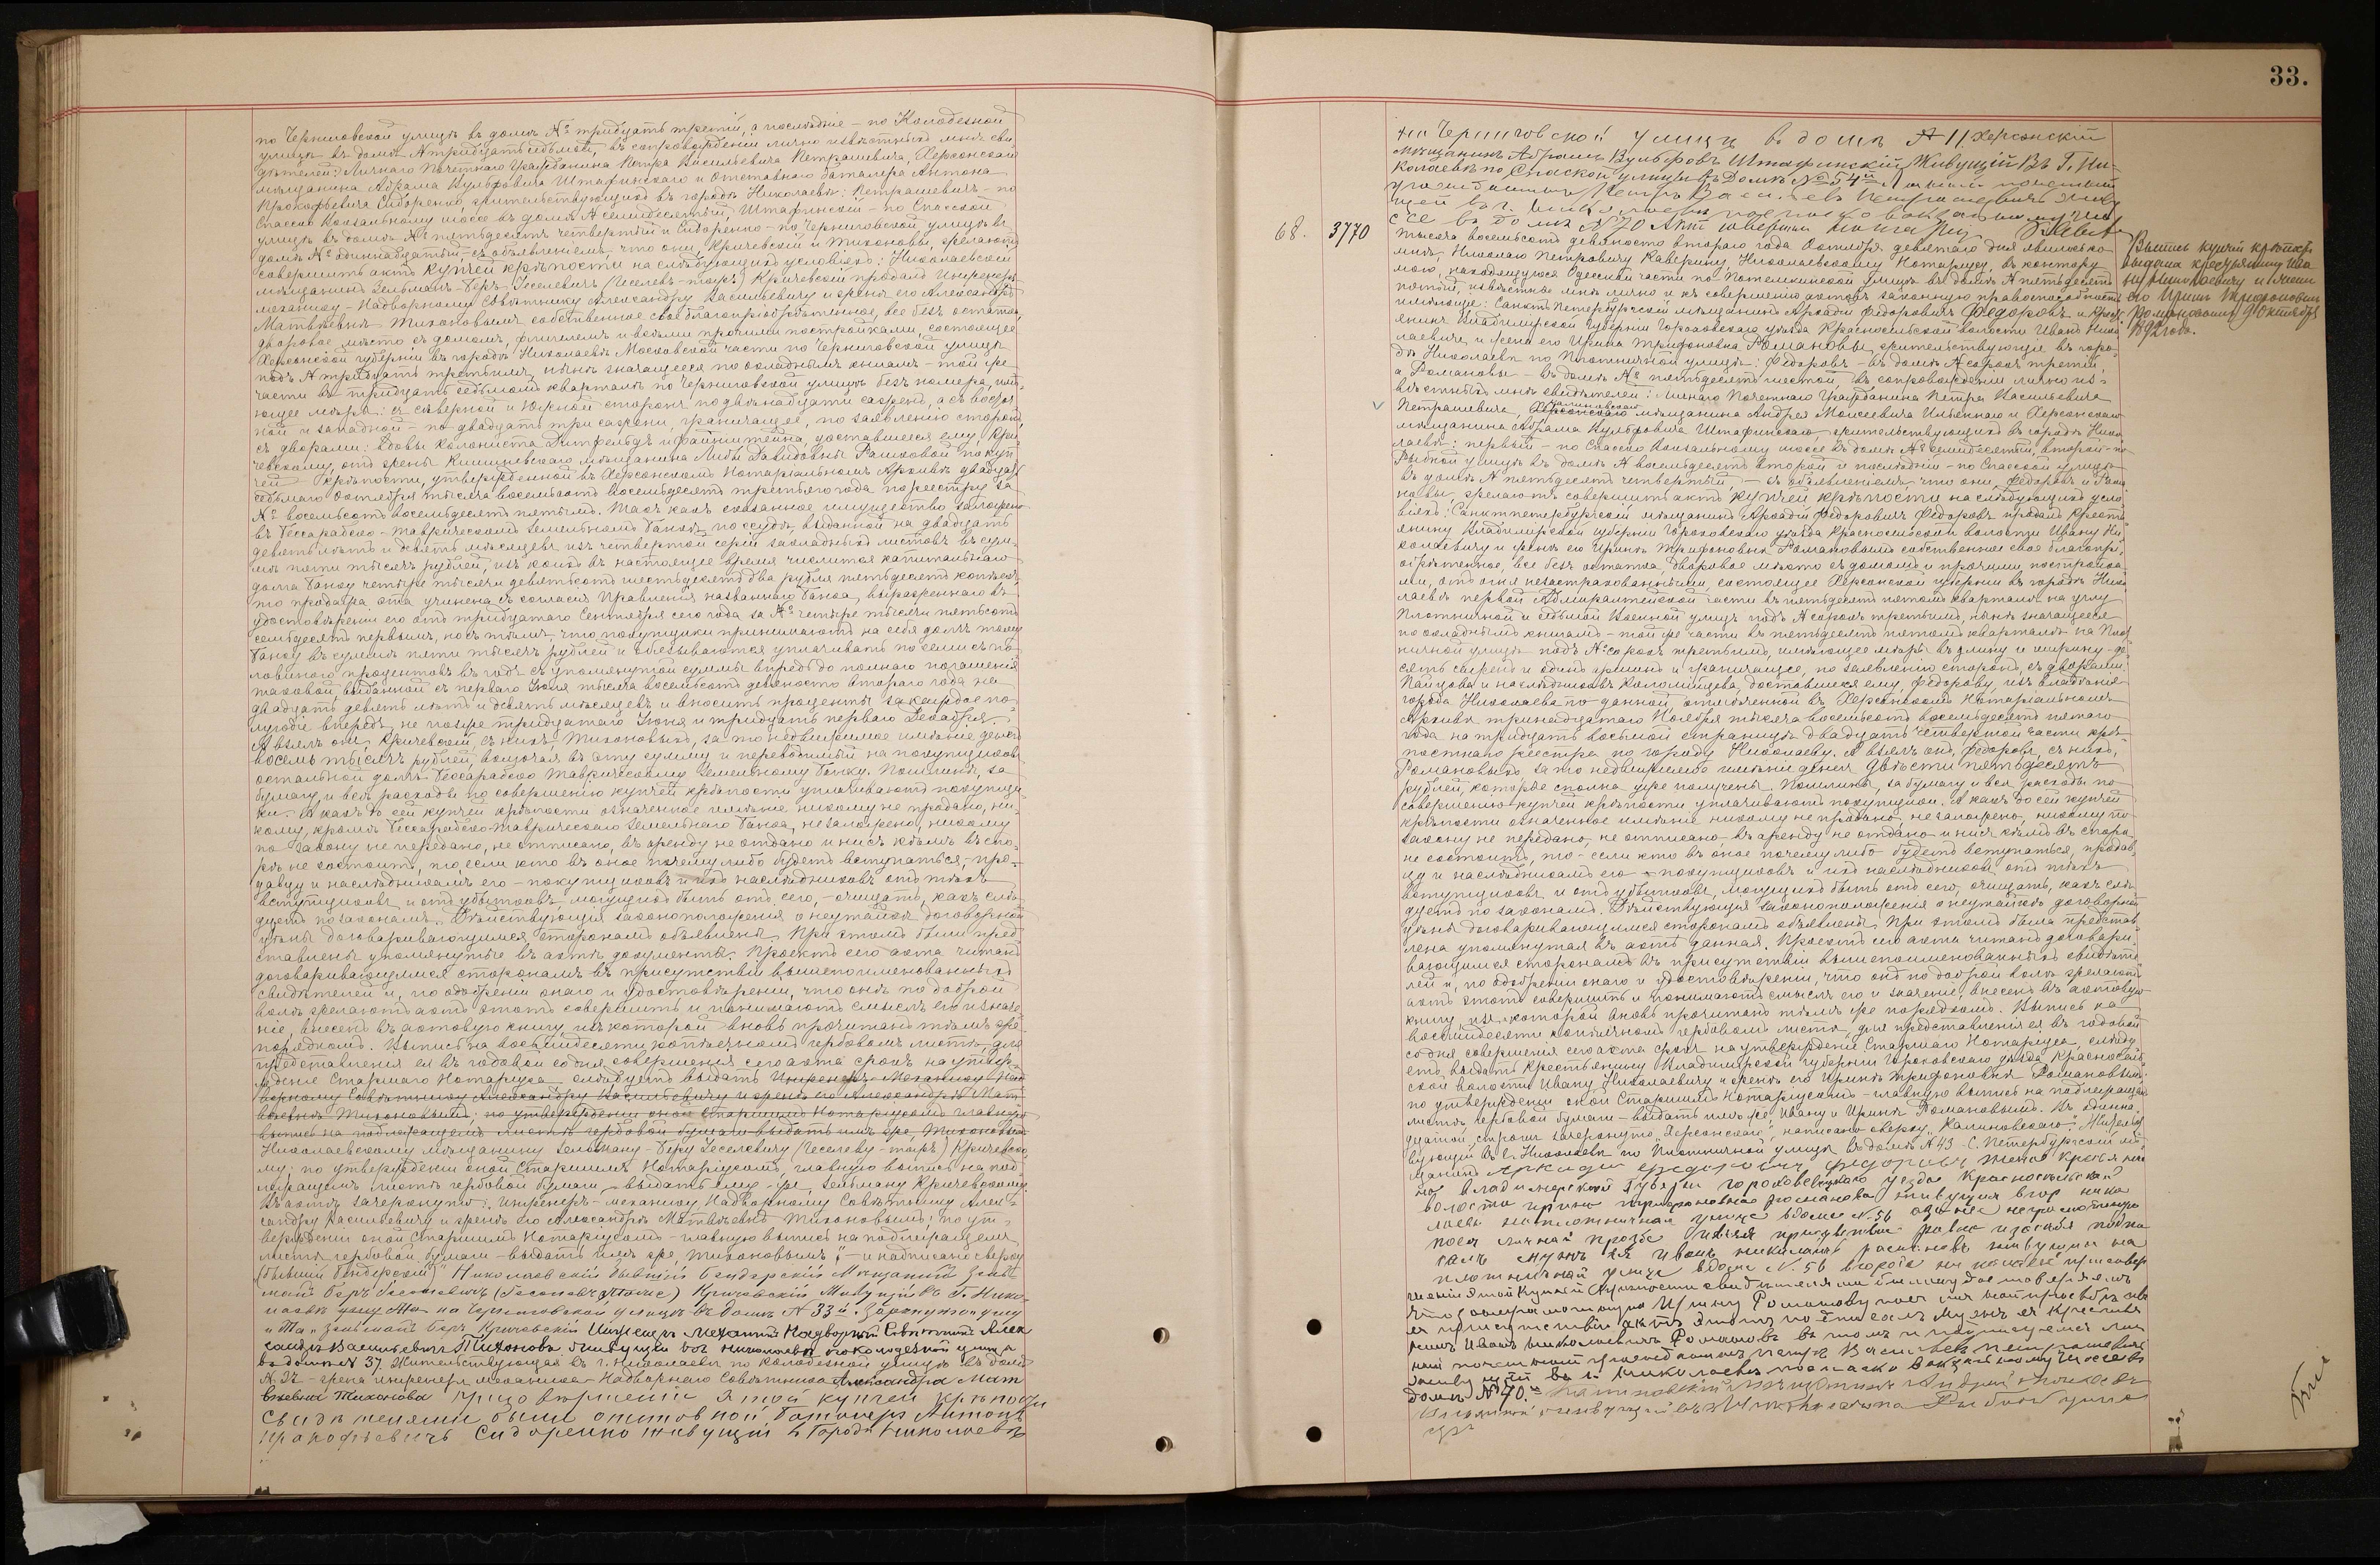 33.
по Черниговской улицѣ въ домѣ № тридцать третій, а послѣдніе – по Колодезной
улицѣ въ домѣ № тридцать седьмой, въ сопровожденіи лично извѣстныхъ мнѣ сви-
дѣтелей: Личнаго Почетнаго Гражданина Петра Васильевича Петрашевича, Херсонскаго
мѣщанина Абрама Вульфовича Штафинскаго и Отставного баталера Антона
Прокофьевича Сидоренко, жительствующихъ въ городѣ Николаевѣ: Петрашевичъ – по
Спасско Вокзальному шоссе въ домѣ № семидесятый, Штафинскій – по Спасской
улицѣ въ домѣ № пятьдесятъ четвертый и Сидоренко – по Черниговской улицѣ въ
домѣ № одиннадцатый, съ объявленіемъ, что они, Кричевскій и Тихоновы, желаютъ
совершить актъ купчей крѣпости на слѣдующихъ условіяхъ: Николаевскій
мѣщанинъ Зельманъ-Беръ Геселевичъ (Геселевъ-тожъ) Кричевскій продалъ Инженеръ
механику – Надворному Совѣтнику Александру Васильевичу и женѣ его Александрѣ
Матвѣевнѣ Тихоновымъ собственное свое благопріобрѣтенное, все безъ остатка,
дворовое мѣсто съ домомъ, флигелемъ и всѣми прочими постройками, состоящее
Херсонской губерніи въ городѣ Николаевѣ Московской части по Черниговской улицѣ
подъ № тридцать третьимъ, нынѣ значащееся по окладнымъ книгамъ – той же
части въ тридцать седьмомъ кварталѣ по Черниговской улицѣ безъ номера, имѣ-
ющее мѣры: съ сѣверной и Южной сторонъ по двѣнадцати саженъ, а съ восточ
ной и западной – по двадцать три сажени, граничащее, по заявленію сторонъ,
съ дворами: Вдовы колониста Дитфельдъ и Файнштейна, доставшееся ему, Кри-
чевскому, отъ жены Кишиневскаго мѣщанина Либы Давидовны Рашковой по куп
чей крѣпости, утвержденной въ Херсонскомъ Нотаріальномъ Архивѣ двадцать
седьмаго Октября тысяча восемьсотъ восемьдесятъ третьяго года по реестру за
№ восемьсотъ восемьдесятъ пятымъ. Такъ какъ сказанное имущество заложено
въ Бессарабско-Таврическомъ Земельномъ Банкѣ по ссудѣ, выданной на двадцать
девять лѣтъ и девять мѣсяцевъ изъ четвертой серіи закладныхъ листовъ въ сум-
мѣ пяти тысячъ рублей, изъ коихъ въ настоящее время числится капитальнаго
долга Банку четыре тысячи девятьсотъ шестьдесятъ два рубля пятьдесятъ копѣекъ,
то продажа эта учинена съ согласія Правленія названнаго Банка, выраженнаго въ
удостовѣреніи его отъ тридцатаго Сентября сего года за № четыре тысячи пятьсотъ
семьдесятъ первымъ, но съ тѣмъ, что покупщики принимаютъ на себя долгъ тому
Банку въ суммѣ пяти тысячъ рублей и обязываются уплачивать по семи съ по-
ловиною процентовъ въ годъ съ упомянутой суммы впредь до полнаго погашенія
таковой, выданной съ перваго Іюля тысяча восемьсотъ девяносто втораго года на
двадцать девять лѣтъ и девять мѣсяцевъ и вносить проценты за каждое по-
лугодіе впередъ, не позже тридцатаго Іюня и тридцать перваго Декабря.
А взялъ онъ, Кричевскій, съ нихъ, Тихоновыхъ, за то недвижимое имѣніе денегъ
восемь тысячъ рублей, включая въ эту сумму и переводимый на покупщиковъ
остальной долгъ Бессарабско Таврическому Земельному Банку. Пошлины, за
бумагу и всѣ расходы по совершенію купчей крѣпости уплачиваютъ покупщи-
ки. А какъ до сей купчей крѣпости означенное имѣніе никому не продано, ни-
кому, кромѣ Бессарабско-Таврическаго Земельнаго Банка, не заложено, никому
по закону не передано, не отписано, въ аренду не отдано и ни съ кѣмъ въ спо-
рѣ не состоитъ, то, если кто въ оное почему либо будетъ вступаться, – про-
давцу и наслѣдникамъ его – покупщиковъ и ихъ наслѣдниковъ отъ тѣхъ
вступщиковъ и отъ убытковъ, могущихъ быть отъ сего, – очищать, какъ слѣ-
дуетъ по законамъ. Дѣйствующія законоположенія о неутайкѣ договорной
цѣны договаривающимся сторонамъ объявлены. При этомъ были пред
ставлены упомянутые въ актѣ документы. Проектъ сего акта читанъ
договаривающимся сторонамъ въ присутствіи вышепоименованныхъ
свидѣтелей и, по одобреніи онаго и удостовѣреніи, что онѣ по доброй
волѣ желаютъ актъ этотъ совершить и понимаютъ смыслъ его и значе
ніе, внесенъ въ актовую книгу, изъ которой вновь прочитанъ тѣмъ же
порядкомъ. Выпись на восьмидесяти копѣечномъ гербовомъ листѣ, для
представленія ея въ годовой со дня совершенія сего акта срокъ на утвер-
жденіе Старшаго Нотаріуса слѣдуетъ выдать Инженеръ-Механику Над
ворному Совѣтнику Александру Васильевичу и женѣ его Александрѣ Мат
вѣевнѣ Тихоновымъ; по утвержденіи оной Старшимъ Нотаріусомъ главную
выпись на подлежащемъ листѣ гербовой бумаги выдать имъ же, Тихоновымъ
Николаевскому мѣщанину Зельману-Беру Геселевичу (Геселеву-тожъ) Кричевско
му; по утвержденіи оной Старшимъ Нотаріусомъ, главную выпись на под-
лежащемъ листѣ гербовой бумаги – выдать ему-же, Зельману Кричевскому.
Въ актѣ зачеркнуто: „Инженеръ-механику Надворному Совѣтнику Алек-
сандру Васильевичу и женѣ его Александрѣ Матвѣевнѣ Тихоновымъ; по ут-
вержденіи оной Старшимъ Нотаріусомъ – главную выпись на подлежащемъ
листѣ гербовой бумаги – выдать имъ же, Тихоновымъ“, – и надписано сверху
(бывшій Бендерскій)“ Николаевскій бывшій Бендерскій Мещанинъ Зель
манъ Беръ Геселевичъ (Геселевъ тоже) Кричевскій Живущій въ Г. Нико
лаевѣ на Черниговской улицѣ въ домѣ № 33й.
Зельманъ Беръ Кричевскій Инженеръ Механикъ Надворный Совѣтникъ Алек
сандръ Васильевичъ Тихоновъ живущій въ г. Николаевѣ по Колодезной улицѣ
въ домѣ № 37. Жительствующая въ г. Николаевѣ по Колодезной улицѣ въ домѣ
№ 37 – жена инженеръ механика – Надворнаго Совѣтника Александра Мат
вѣевна Тихонова При совѣршеніи этой купчей крѣпости
свидѣтелями были отставной Баталеръ Антонъ
Прокофьевичъ Сидоренко живущій в Городѣ Николаевѣ
на Черниговской улицѣ въ домѣ № 11. Херсонскій
мѣщанинъ Абрамъ Вульфовъ Штафинскій Живущій Въ Г. Ни-
колаевѣ по Спасской улицѣ въ Домѣ № 54й и личный почетный
гражданинъ Петръ Василь евъ Петрашевичъ живу
щій въ г. Николаевѣ по Спаско вокзальному шо
ссе въ домѣ № 70 Актъ совершилъ Нотаріусъ
68.
3770
Тысяча восемьсотъ девяносто втораго года Октября девятаго дня явились ко
мнѣ, Николаю Петровичу Каверину, Николаевскому Нотаріусу, въ контору
мою, находящуюся Одесской части по Потемкинской улицѣ въ домѣ № пятьдесятъ
пятый, извѣстные мнѣ лично и къ совершенію актовъ законную правоспособность
имѣющіе: Санктъ Петербургскій мѣщанинъ Аркадій Федоровичъ Федоровъ и Крест
янинъ Владимірской губерніи Гороховскаго уѣзда Красносельской волости Иванъ Нико
лаевичъ и жена его Ирина Трифоновна Романовы, жительствующіе въ горо-
дѣ Николаевѣ по Плотничной улицѣ: Федоровъ – въ домѣ № сорокъ третій,
а Романовы – въ домѣ № пятьдесятъ шестой, въ сопровожденіи лично из-
вѣстныхъ мнѣ свидѣтелей: Личнаго Почетнаго Гражданина Петра Васильевича
Калиновскаго
Петрашевича, Херсонскаго мѣщанина Андрея Моисеевича Ильяшаго и Херсонскаго
мѣщанина Абрама Вульфовича Штафинскаго, жительствующихъ въ городѣ Нико
лаевѣ: первый – по Спасско Вокзальному шоссе въ домѣ № семидесятый, второй – по
Рыбной улицѣ въ домѣ № восемьдесятъ второй и послѣдній – по Спасской улицѣ
въ домѣ № пятьдесятъ четвертый, – съ объявленіемъ, что они, Федоровъ и Рома
новы, желаютъ совершить актъ купчей крѣпости на слѣдующихъ усло
віяхъ: Санктпетербургскій мѣщанинъ Аркадій Федоровичъ Федоровъ продалъ Крест
янину Владимірской губерніи Гороховскаго уѣзда Красносельской волости Ивану Ни
колаевичу и женѣ его Иринѣ Трифоновнѣ Романовымъ собственное свое благопрі-
обрѣтенное, все безъ остатка, дворовое мѣсто съ домомъ и прочими постройка
ми, отъ огня незастрахованными, состоящее Херсонской губерніи въ городѣ Нико
лаевѣ первой Адмиралтейской части въ пятьдесятъ пятомъ кварталѣ на углу
Плотничной и седьмой Военной улицъ подъ № сорокъ третьимъ, нынѣ значащееся
по окладнымъ книгамъ – той же части въ пятьдесятъ пятомъ кварталѣ на Плот
ничной улицѣ подъ № сорокъ третьимъ, имѣющее мѣры въ длину и ширину – де
сять саженъ и одинъ аршинъ и граничащее, по заявленію сторонъ, съ дворами:
Пайцова и наслѣдниковъ Коломійцева, доставшееся ему, Федорову, изъ владѣнія
города Николаева по данной, отмѣченной въ Херсонскомъ Нотаріальномъ
Архивѣ тринадцатаго Ноября тысяча восемьсотъ восемьдесятъ пятаго
года на тридцать восьмой страницѣ двадцать четвертой части крѣ-
постнаго реестра по городу Николаеву. А взялъ онъ, Федоровъ, съ нихъ,
Романовыхъ, за то недвижимое имѣніе денегъ двѣсти пятьдесятъ
рублей, которые сполна уже получены. Пошлины, за бумагу и всѣ расходы по
совершенію купчей крѣпости уплачиваютъ покупщики. А какъ до сей купчей
крѣпости означенное имѣніе никому не продано, не заложено, никому по
закону не передано, не отписано, въ аренду не отдано и ни съ кѣмъ въ спорѣ
не состоитъ, то – если кто въ оное почему либо будетъ вступаться, продав
цу и наслѣдникамъ его – покупщиковъ и ихъ наслѣдниковъ отъ тѣхъ
вступщиковъ и отъ убытковъ, могущихъ быть отъ сего, очищать, какъ слѣ-
дуетъ по законамъ. Дѣйствующія законоположенія о неутайкѣ договорной
цѣны договаривающимся сторонамъ объявлены. При этомъ была представ
лена упомянутая въ актѣ данная. Проектъ сего акта читанъ договари-
вающимся сторонамъ въ присутствіи вышепоименованныхъ свидѣте
лей и, по одобреніи онаго и удостовѣреніи, что онѣ по доброй волѣ желаютъ
актъ этотъ совершить и понимаютъ смыслъ его и значеніе, внесенъ въ актовую
книгу, изъ которой вновь прочитанъ тѣмъ же порядкомъ. Выпись на
восьмидесяти копѣечномъ гербовомъ листѣ, для представленія ея въ годовой
со дня совершенія сего акта срокъ на утвержденіе Старшаго Нотаріуса, слѣду-
етъ выдать Крестьянину Владимірской губерніи Гороховскаго уѣзда Красносель
ской волости Ивану Николаевичу и женѣ его Иринѣ Трифоновнѣ Романовымъ;
по утвержденіи оной Старшимъ Нотаріусомъ – главную выпись на подлежащемъ
листѣ гербовой бумаги – выдать имъ же Ивану и Иринѣ Романовымъ. Въ одинна
дцатой строкѣ зачеркнуто „Херсонскаго“, написано сверху „Калиновскаго“. Жительст
вующій въ г. Николаевѣ по Плотничной улицѣ въ домѣ № 43 – С. Петербургскій мѣ
щанинъ Аркадій Федоровичъ Федоровъ жена крестьяни
на Владимерской Губерни Гороховецкаго уезда Красносельской
волости Ирина Трифоновна Романова живущия в гор Нико
лаевѣ на плотничной улице в доме № 56 а за нее неграмотную
поея личной прозбе
мужъ ея Иванъ Николаевъ Романовъ живущии на
плотничной улице в доме № 56 в городе Николаеве при совер
шеніи этой Купчей Крѣпости свидѣтелями были и удостовѣряемъ
что за неграмотную Ирину Романову по ея личной просьбѣ въ
ея присутствіи актъ этотъ подписалъ Мужъ ея Крестья
нинъ Иванъ Николаевичъ Романовъ въ томъ и подписуемся лич
ный почетный гражданинъ Петръ Васильевъ Петрашевичъ
живущій въ г. Николаевѣ по спаско Вокзальному шоссе въ
домѣ № 70. Калиновскій мѣщанинъ Андрей Моисеевъ
живущій въ г. Николаевѣ на Рыбной ули
цѣ
Выпись купчей крѣпости
выдана крестьянину Ива
ну Николаевичу и женѣ
его Иринѣ Трифоновнѣ
Романовымъ 9 Октября
1892 года.